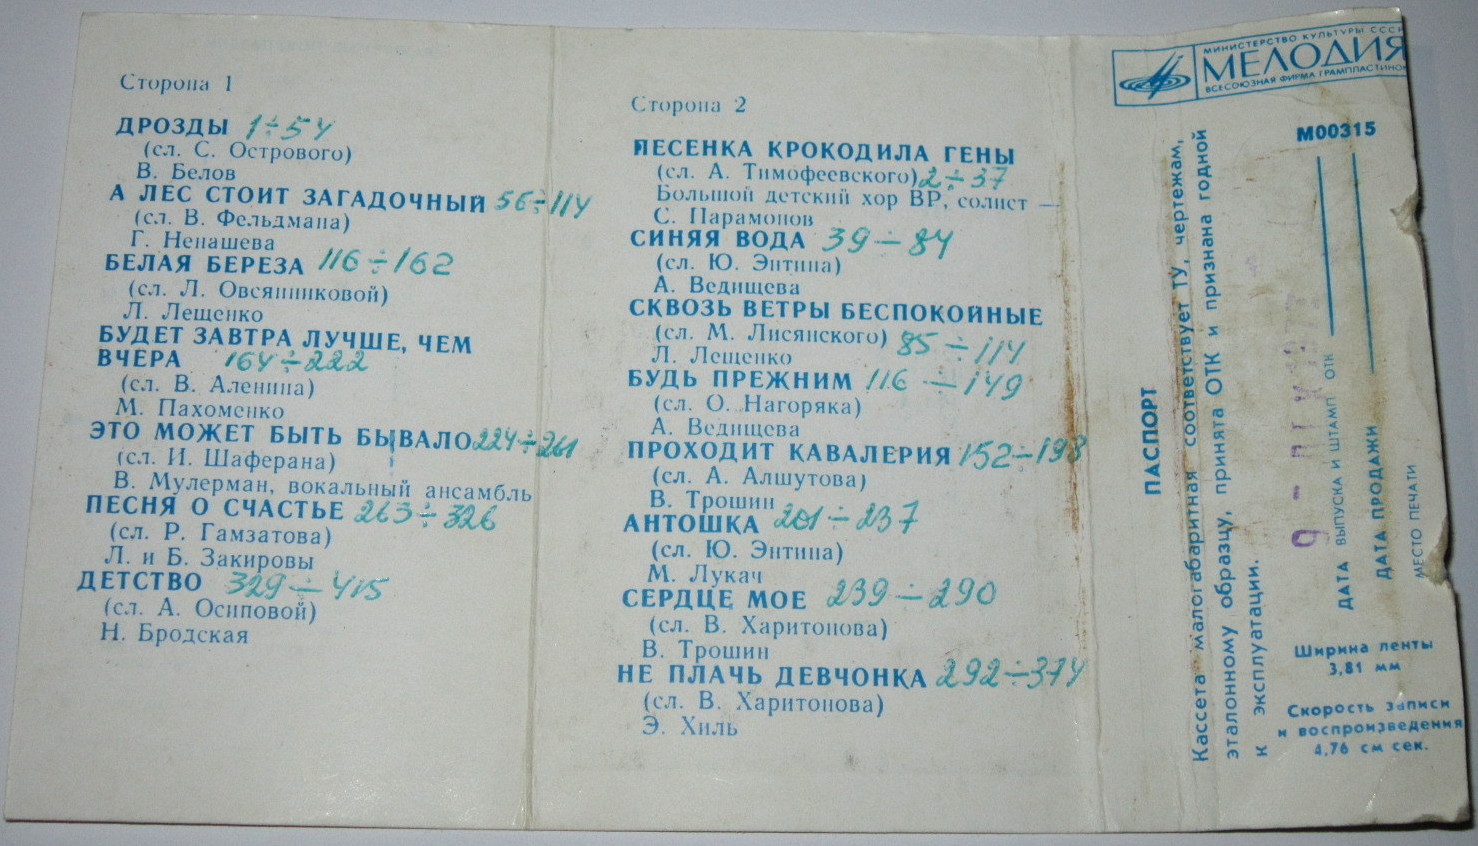 Сторона 1
ДРОЗДЫ 1÷54
(сл. С. Острового)
В. Белов
А ЛЕС СТОИТ ЗАГАДОЧНЫЙ 56÷114
(сл. В. Фельдмана)
Г. Ненашева
БЕЛАЯ БЕРЕЗА 116÷162
(сл. Л. Овсянниковой)
Л. Лещенко
БУДЕТ ЗАВТРА ЛУЧШЕ, ЧЕМ
ВЧЕРА 164÷222
(сл. В. Аленина)
М. Пахоменко
ЭТО МОЖЕТ БЫТЬ БЫВАЛО 224÷261
(сл. И. Шаферана)
В. Мулерман, вокальный ансамбль
ПЕСНЯ О СЧАСТЬЕ 263÷326
(сл. Р. Гамзатова)
Л. и Б. Закировы
ДЕТСТВО 329÷415
(сл. А. Осиповой)
Н. Бродская
Сторона 2
ПЕСЕНКА КРОКОДИЛА ГЕНЫ
(сл. А. Тимофеевского) 2÷37
Большой детский хор ВР, солист —
С. Парамонов
СИНЯЯ ВОДА 39÷84
(сл. Ю. Энтина)
А. Ведищева
СКВОЗЬ ВЕТРЫ БЕСПОКОЙНЫЕ
(сл. М. Лисянского) 85÷114
Л. Лещенко
БУДЬ ПРЕЖНИМ 116÷149
(сл. О. Нагоряка)
А. Ведищева
ПРОХОДИТ КАВАЛЕРИЯ 152÷198
(сл. А. Алшутова)
В. Трошин
АНТОШКА 201÷237
(сл. Ю. Энтина)
М. Лукач
СЕРДЦЕ МОЕ 239÷290
(сл. В. Харитонова)
В. Трошин
НЕ ПЛАЧЬ ДЕВЧОНКА 292÷374
(сл. В. Харитонова)
Э. Хиль
МИНИСТЕРСТВО КУЛЬТУРЫ СССР
МЕЛОДИЯ
ВСЕСОЮЗНАЯ ФИРМА ГРАМПЛАСТИНОК
М00315
ПАСПОРТ
Кассета малогабаритная соответствует ТУ, чертежам,
эталонному образцу, принята ОТК и признана годной
к эксплуатации.
ДАТА ВЫПУСКА И ШТАМП ОТК
ДАТА ПРОДАЖИ
МЕСТО ПЕЧАТИ
Ширина ленты
3,81 мм
Скорость записи
и воспроизведения
4,76 см сек.